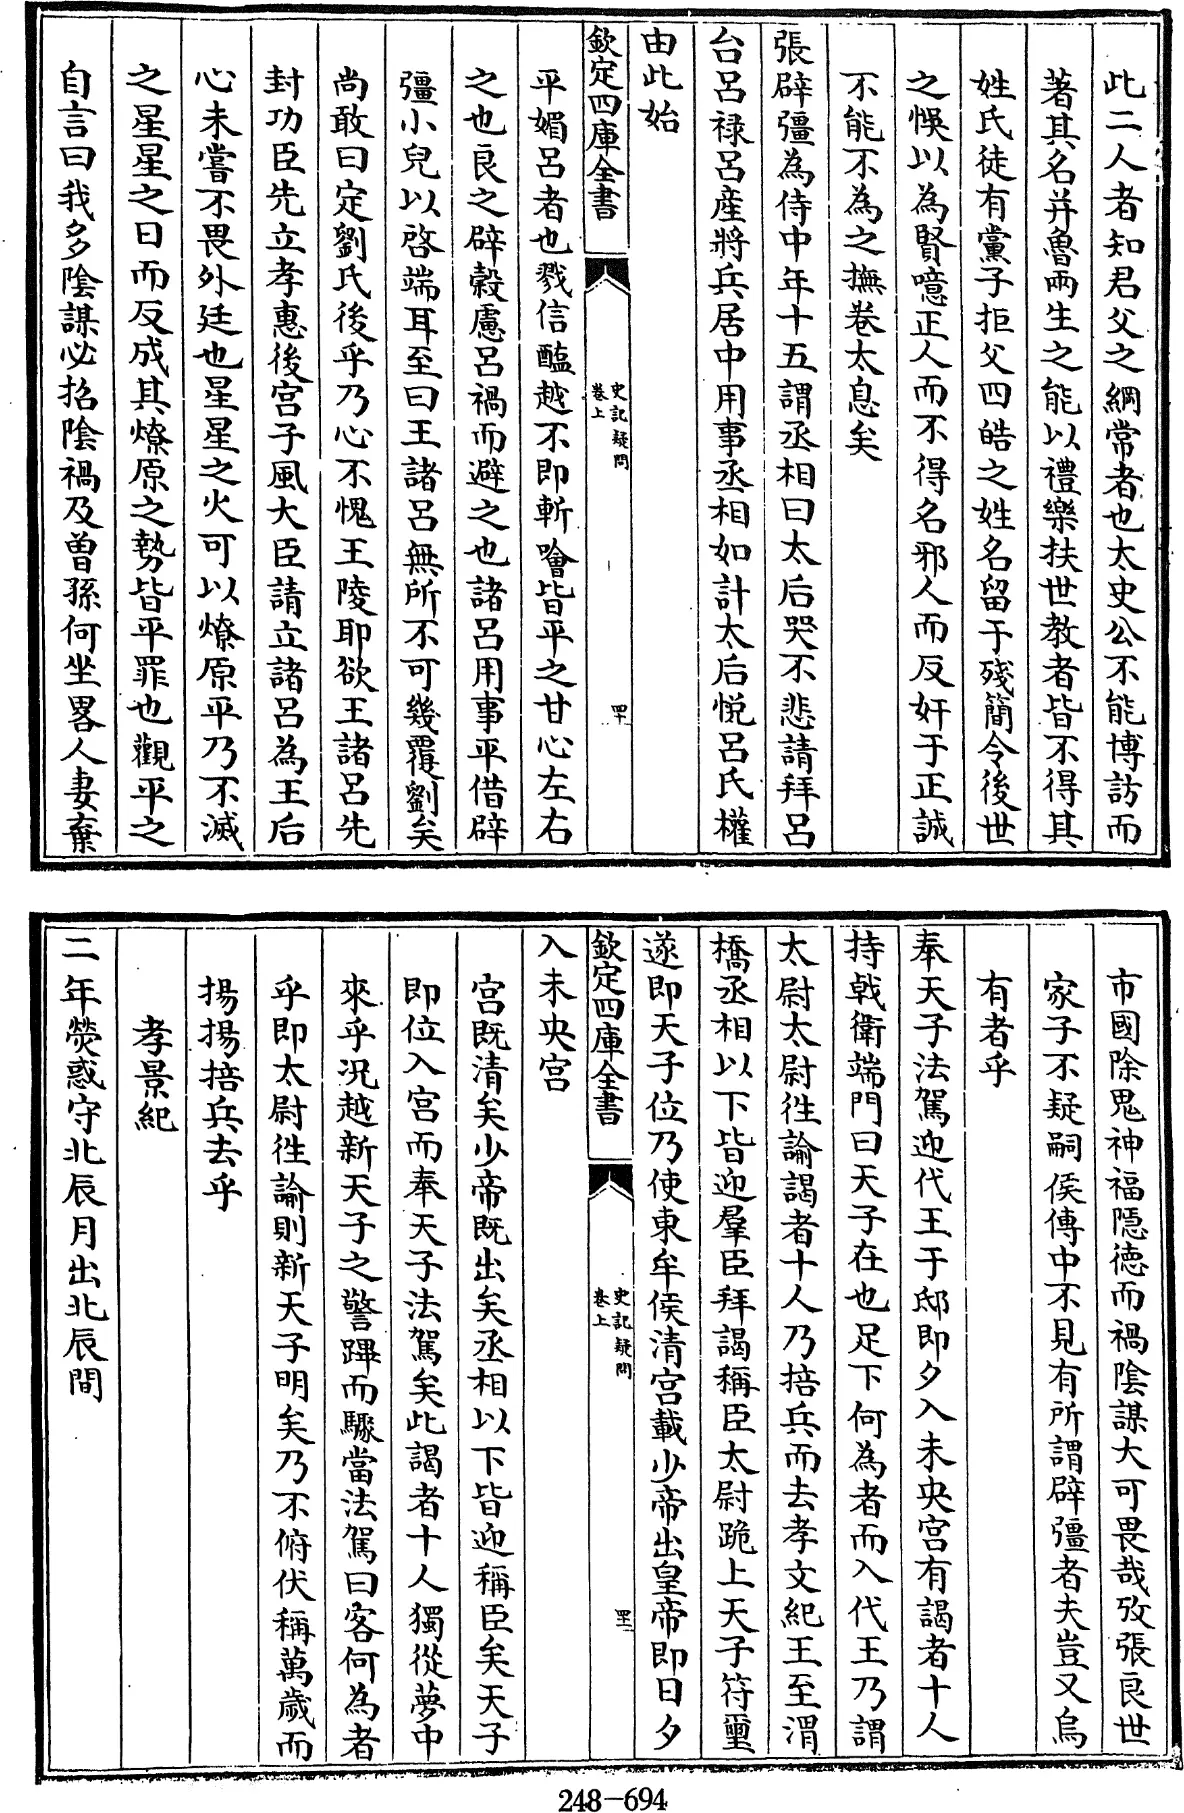 此二人者知君父之綱常者也太史公不能博訪而
著其名并魯兩生之能以禮樂扶世教者皆不得其
姓氏徒有黨子拒父四皓之姓名留于殘簡令後世
之悞以為賢噫正人而不得名邪人而反奸于正誠
不能不為之撫卷太息矣
張辟彊為侍中年十五謂丞相曰太后哭不悲請拜呂
台呂祿呂產將兵居中用事丞相如計太后悅呂氏權
由此始
欽定四庫全書
史記疑問
卷上
四十
平媚呂者也戮信醢越不即斬噲皆平之甘心左右
之也良之辟穀慮呂禍而避之也諸呂用事平借辟
彊小兒以啓端耳至曰王諸呂無所不可幾覆劉矣
尚敢曰定劉氏後乎乃心不愧王陵耶欲王諸呂先
封功臣先立孝惠後宮子風大臣請立諸呂為王后
心未嘗不畏外廷也星星之火可以燎原平乃不滅
之星星之日而反成其燎原之勢皆平罪也觀平之
自言曰我多陰謀必招陰禍及曾孫何坐畧人妻棄
市國除鬼神福隱德而禍陰謀大可畏哉攷張良世
家子不疑嗣侯傳中不見有所謂辟彊者夫豈又烏
有者乎
奉天子法駕迎代王于邸即夕入未央宮有謁者十人
持戟衛端門曰天子在也足下何為者而入代王乃謂
太尉太尉徃諭謁者十人乃掊兵而去孝文紀王至渭
橋丞相以下皆迎羣臣拜謁稱臣太尉跪上天子符璽
遂即天子位乃使東牟侯清宮載少帝出皇帝即日夕
欽定四庫全書
史記疑問
卷上
四十一
入未央宮
宮既清矣少帝既出矣丞相以下皆迎稱臣矣天子
即位入宮而奉天子法駕矣此謁者十人獨從夢中
來乎况越新天子之警蹕而驟當法駕曰客何為者
乎即太尉徃諭則新天子明矣乃不俯伏稱萬歲而
揚揚掊兵去乎
孝景紀
二年熒惑守北辰月出北辰間
248-694